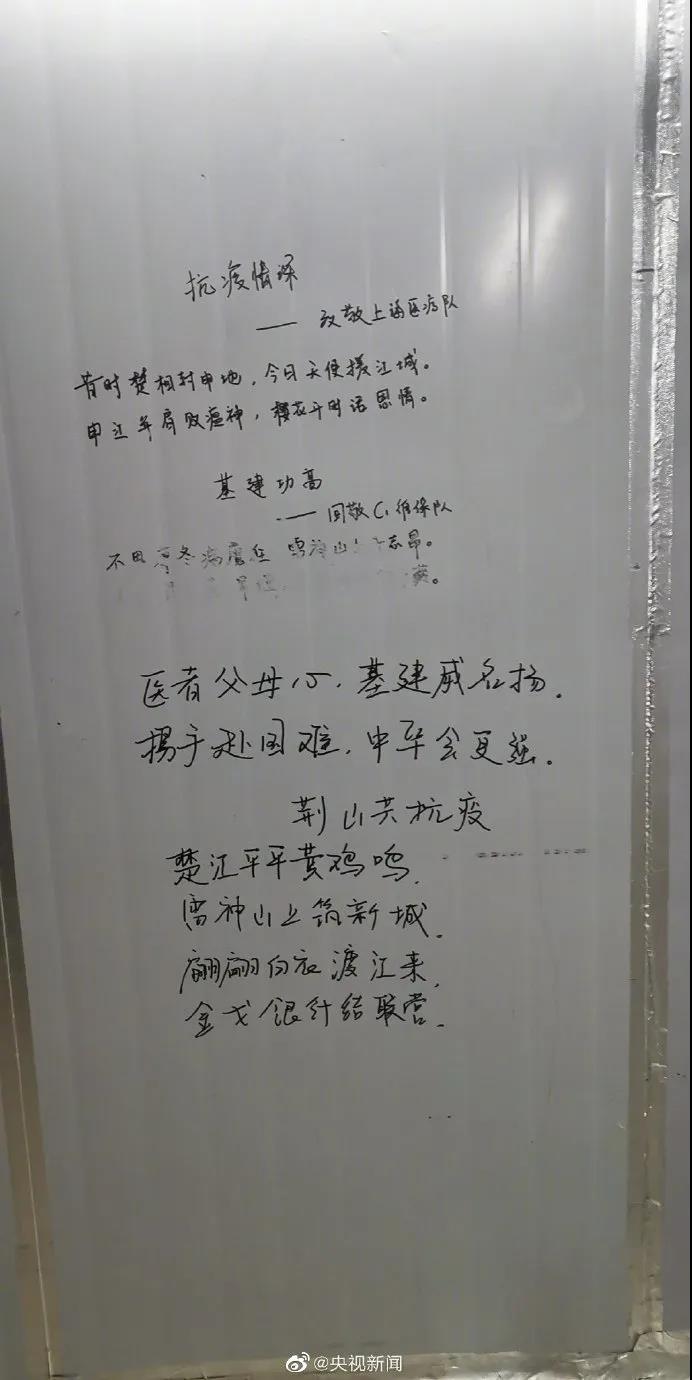 抗疫情深
—— 致敬上海医疗队
昔时楚相封申地，今日天使援江城。
申江并肩败瘟神，樱花开时话恩情。
基建功高
—— 回敬C1维保队
不因 冬病 雷神山上 志昂。
医者父母心，基建威名扬.
携手赴国难，中华会更强.
荆山共抗疫
楚江平平黄鸡鸣,
雷神山上筑新城,
翩翩白衣渡江来,
金戈银针结联营.
@央视新闻